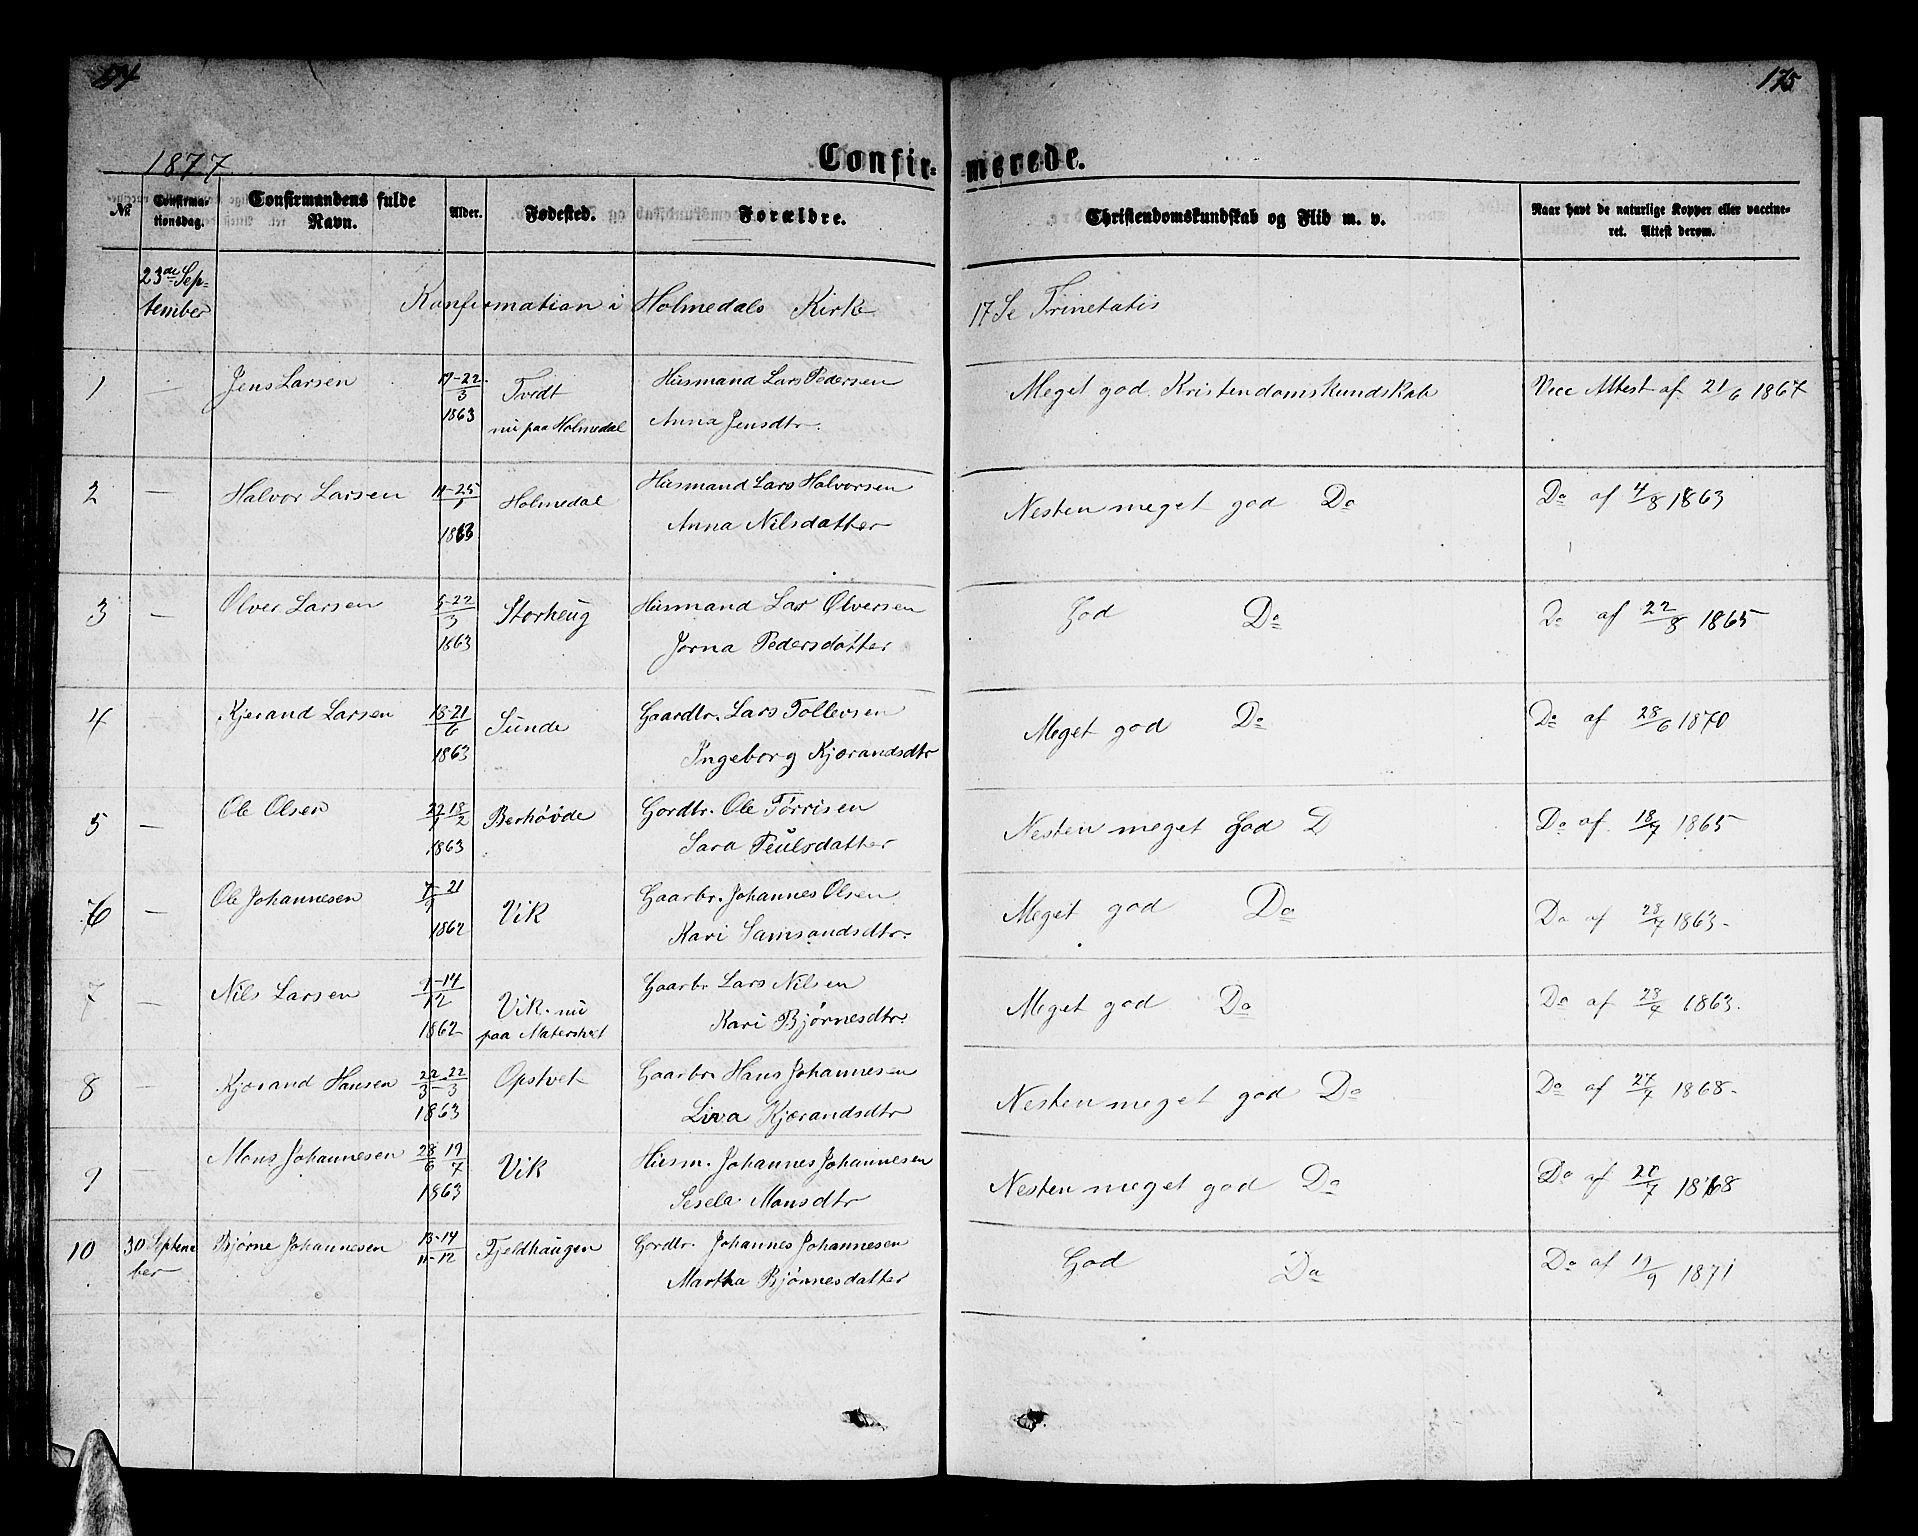 174
175
1877
Confir-
merede.
No.
Confirma-
tionsdag.
Confirmandens fulde
Navn.
Alder.
Fødested.
Forældre.
Christendomskundskab og Flid m. v.
Naar havt de naturlige Kopper eller vaccine-
ret. Attest derom.
23de Sep-
tember
Konfirmation i Holmedals Kirke
17 Se Trinetatis
1 — Jens Larsen 17-22/3 1863 Tvedt nu paa Holmedal Husmand Lars Pedersen
Anna Jensdtr.
Meget god Kristendomskundskab Vacc Attest af 21/6 1867
2 — Halvor Larsen 11-25/1 1863 Holmedal Husmand Lars Halvorsen
Anna Nilsdatter
Nesten meget god Do Do af 4/8 1863
3 — Ølver Larsen 5-22/3 1863 Storheug Husmand Lar Ølversen
Jorna Pedersdatter
God Do Do af 22/8 1865
4 — Kjerand Larsen 13-21/6 1863 Sunde Gaardtr. Lars Tollevsen
Ingeborg Kjærandsdtr
Meget god Do Do af 28/6 1870
5 — Ole Olsen 22/1 18/2 1863 Berhøvde Gordtr. Ole Tørrisen
Sara Peulsdatter
Nesten meget god D Do af 18/7 1865
6 — Ole Johannesen 7-21/9 1862 Vik Gaarbr. Johannes Olsen
Kari Samsandsdtr.
Meget god Do Do af 28/7 1863
7 — Nils Larsen 1-14/12 1862 Vik nu paa Matershat Gaarbr Lars Nilsen
Kari Bjørnesdtr.
Meget god Do Do af 28/7 1863.
8 — Kjærand Hansen 22/3-22/3 1863 Opstvet Gaarbr Hans Johannesen
Liva Kjærandsdtr
Nesten meget god Do Do af 27/7 1868
9 — Mons Johannesen 28/6 19/7 1863 Vik Husm. Johannes Johannesen
Sesela Monsdtr
Nesten meget god Do Do af 20/7 1868
10 30 September Bjørne Johannesen 13-14/11-12 Fjeldhaugen Gordtr. Johannes Johannesen
Martha Bjørnesdatter
God Do Do af 19/9 1871